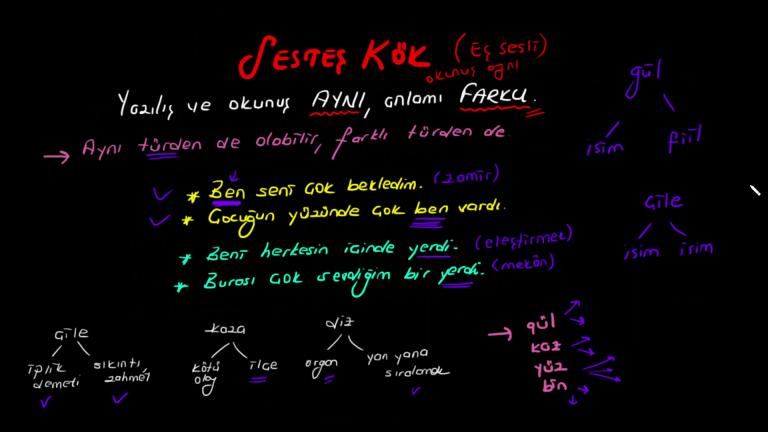 SESTEŞ KÖK (Eş sesli)
okunuş aynı
Yazılış ve okunuş AYNI, anlamı FARKLI.
→ Aynı türden de olabilir, farklı türden de.
gül
isim fiil
* Ben seni çok bekledim. (zamir)
* Çocuğun yüzünde çok ben vardı.
çile
isim isim
* Beni herkesin içinde yerdi. (eleştirmek)
* Burası çok sevdiğim bir yerdi. (mekân)
çile
iplik demeti
sıkıntı, zahmet
kaza
kötü olay
ilçe
diz
organ
yan yana sıralamak
→ gül
kaz
yüz
bin